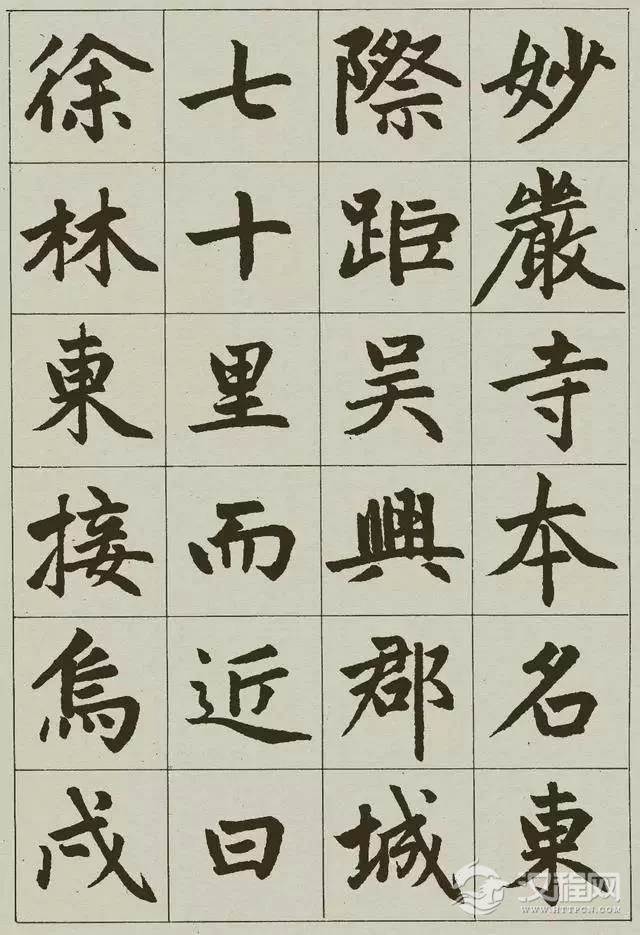 妙嚴寺本名東
際距吴興郡城
七十里而近曰
徐林東接烏戍
汉程网
WWW.HTTPCN.COM